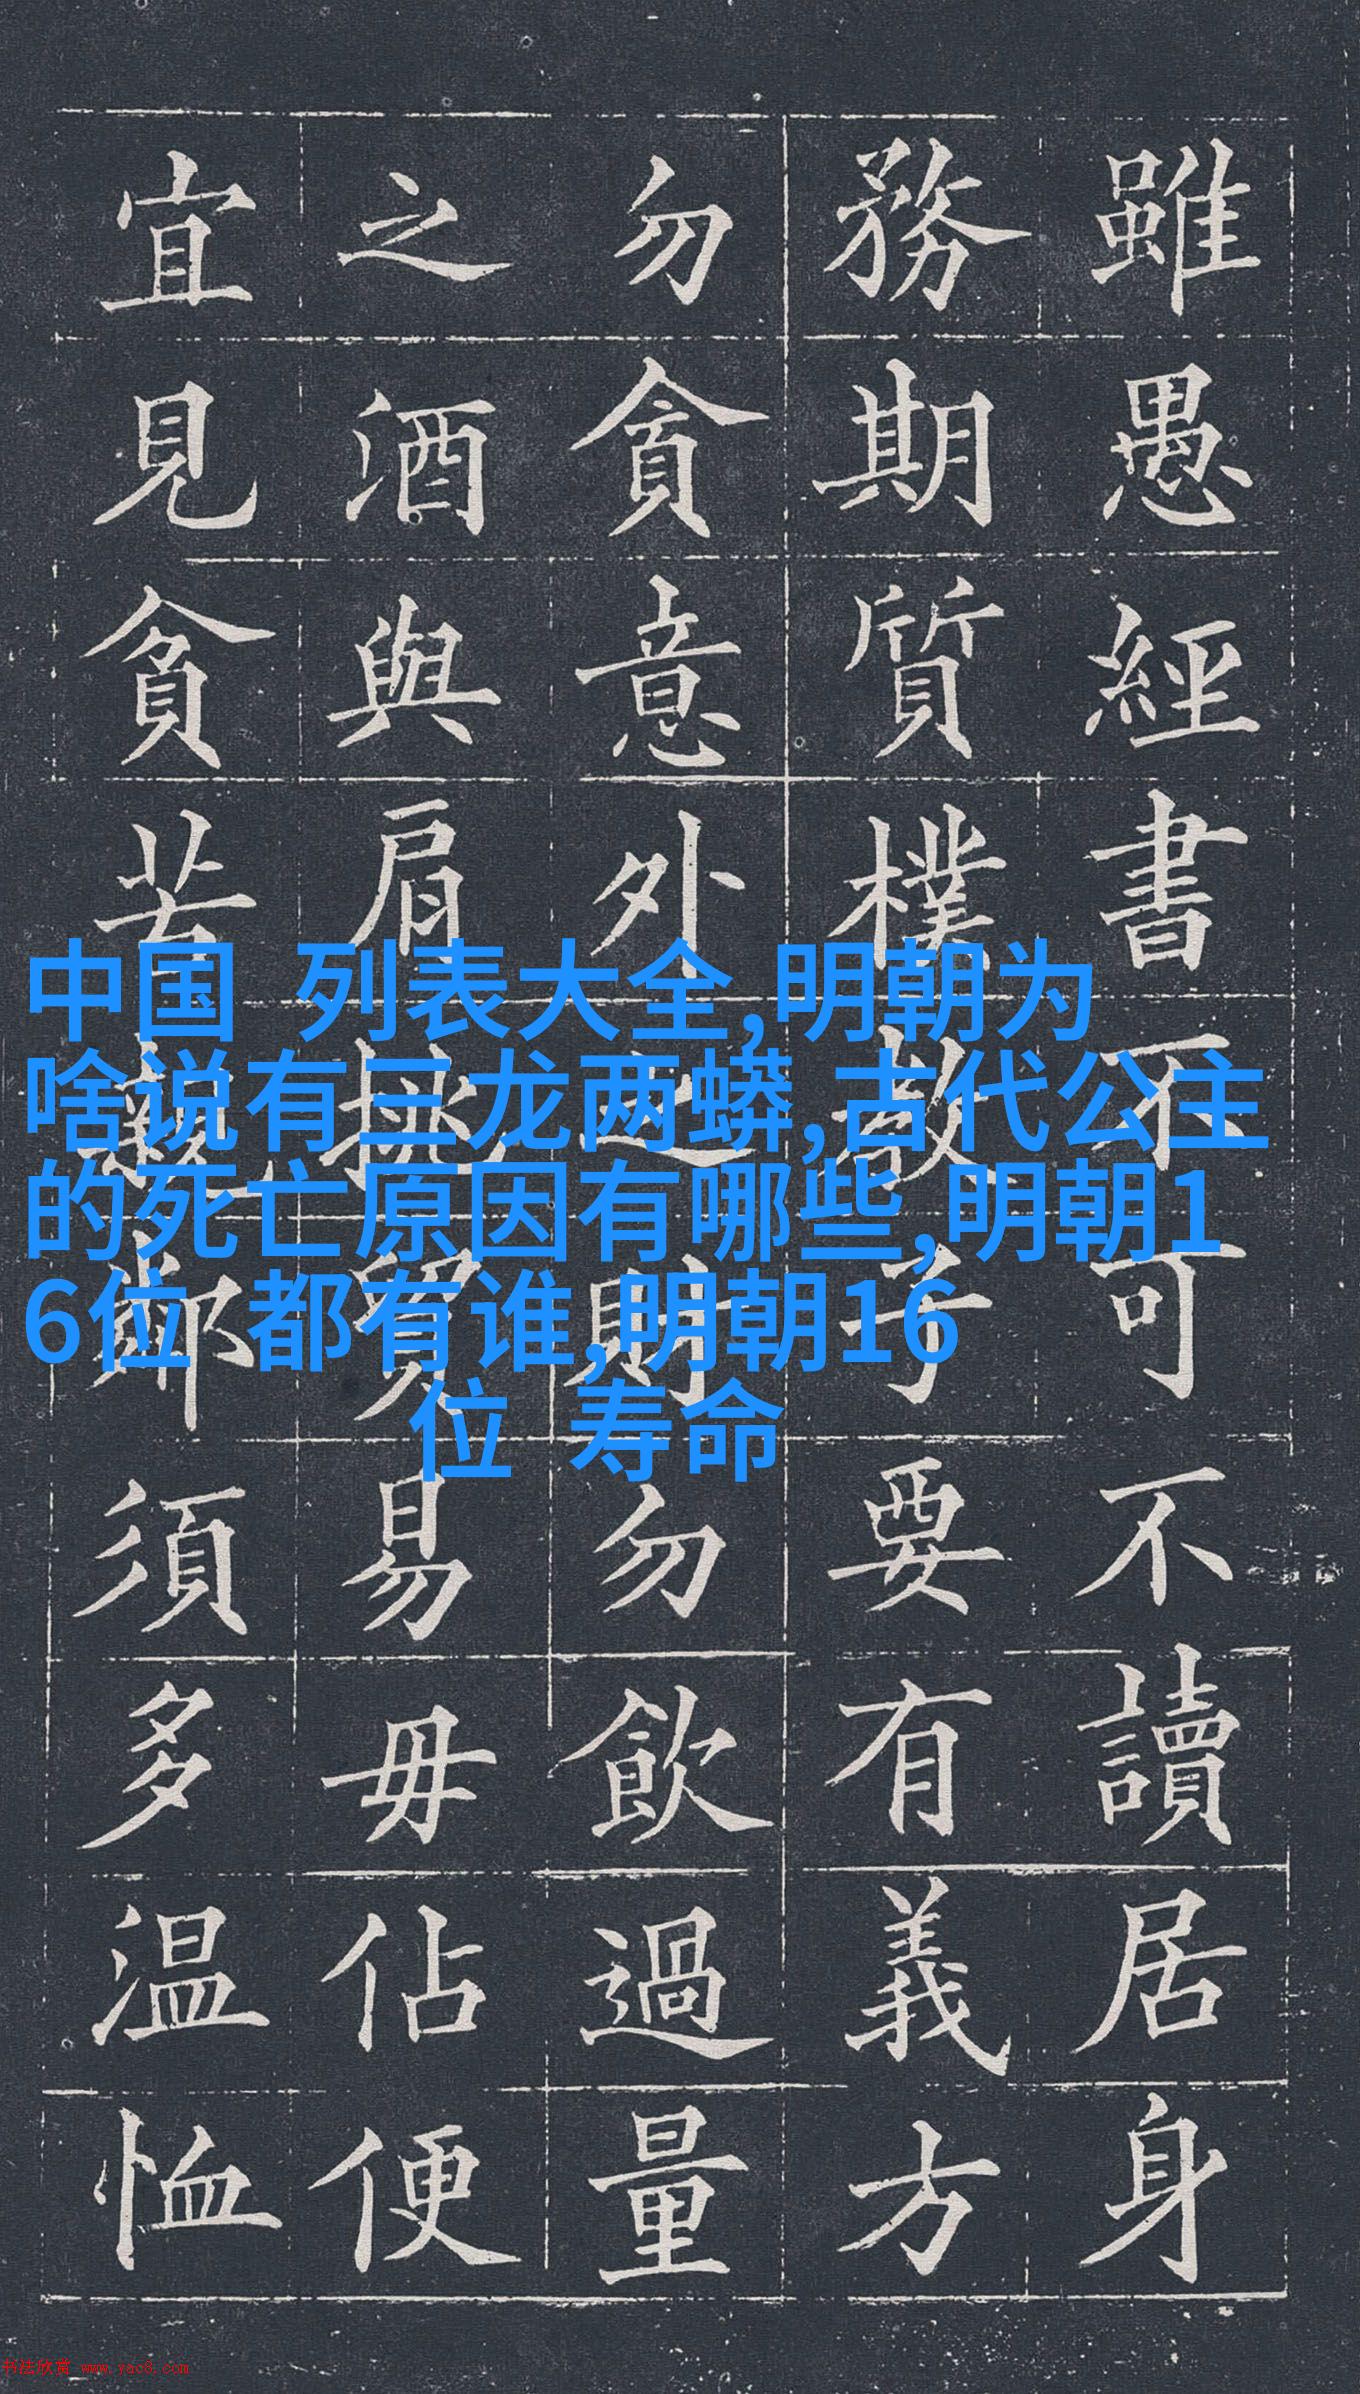 雖愚經書不可不讀居身
務期質樸教子要有義方
勿貪意外之財勿飲過量
之酒與肩挑貿易毋佔便
宜見貧苦親鄰須多温恤
中国 列表大全,明朝为
啥说有三龙两蟒,古代公主
的死亡原因有哪些,明朝1
6位 都有谁,明朝16
位 寿命
书法欣赏 www.yac8.com